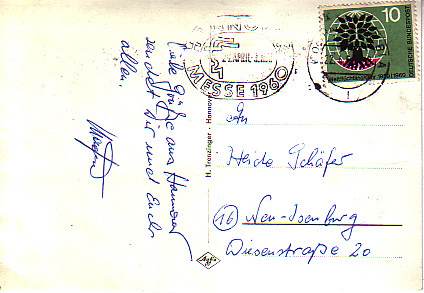 Liebe Grüße aus Hannover
sendet Dir und Euch
allen.
MESSE 1960
10
DEUTSCHE BUNDESPOST
H. Franzinger · Hannover
An
Heide Schäfer
16 Neu-Isenburg
Wiesenstraße 20
Agfa